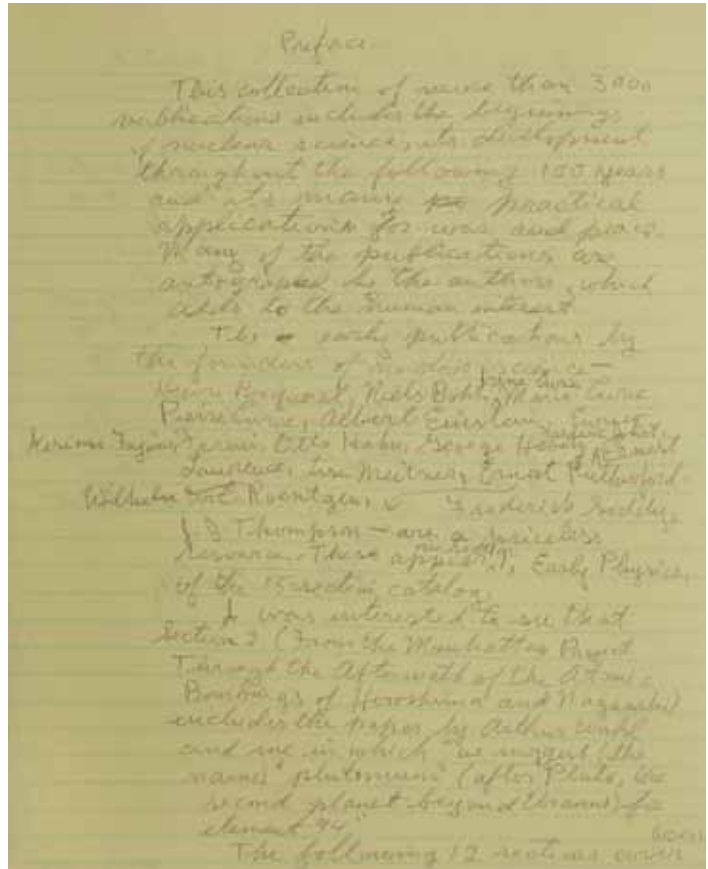 Preface
This collection of more than 3000
publications includes the beginning
of nuclear science, its development
throughout the following 100 years
and its many practical
applications for war and peace.
Many of the publications are
autographed by the authors, which
adds to the human interest
The early publications by
the founders of nuclear science—
Henri Becquerel, Niels Bohr, Marie Curie
Irene Curie
Pierre Curie, Albert Einstein, Enrico
Kasimir Fajans, Fermi, Otto Hahn, George
Ernest
Lawrence, Lise Meitner, Ernest Rutherford
Wilhelm Roentgen, Frederick Soddy,
J J Thompson — are a priceless
resource. These appear
1, Early Physics,
of the 15 section catalog.
I was interested to see that
Section 2 (From the Manhattan Project
Through the Aftermath of the Atomic
Bombings of Hiroshima and Nagasaki)
includes the paper by Arthur Wahl
and me in which we suggest the
name "plutonium" (after Pluto, the
second planet beyond Uranus) for
element 94
The following 12 sections cover